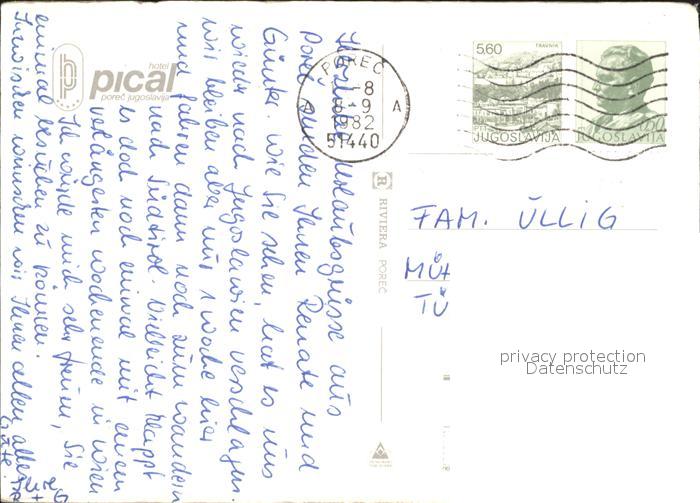 hotel
pical
poreč jugoslavija
Herzliche Urlaubsgrüsse aus
Poreč senden Ihnen Renate und
Günter. Wie Sie sehen, hat es uns
wieder nach Jugoslawien verschlagen.
Wir bleiben aber nur 1 Woche hier
und fahren dann noch zum Wandern
nach Südtirol. Vielleicht klappt
es doch noch einmal mit einem
verlängerten Wochenende in Wien
Ich würde mich sehr freuen, Sie
einmal besuchen zu können.
Inzwischen wünschen wir Ihnen allen alles
Gute.
POREČ
-8
8-9
A A
1982
51440
5,60
TRAVNIK
JUGOSLAVIJA
JUGOSLAVIJA
RIVIERA POREČ
FAM. ÜLLIG
privacy protection
Datenschutz